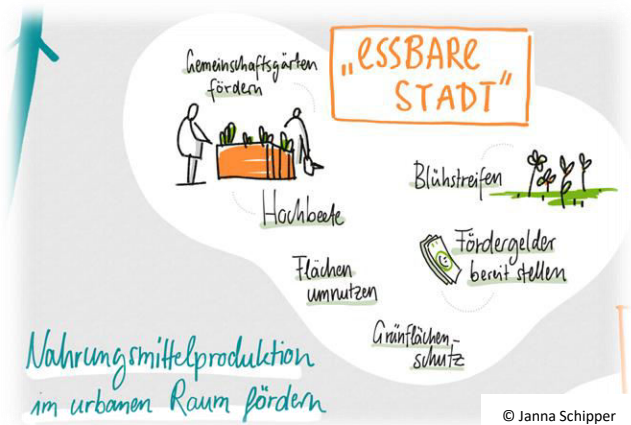 „ESSBARE
STADT“
Gemeinschaftsgärten
fördern
Hochbeete
Blühstreifen
Fördergelder
bereit stellen
Flächen
umnutzen
Grünflächen-
schutz
Nahrungsmittelproduktion
im urbanen Raum fördern
© Janna Schipper